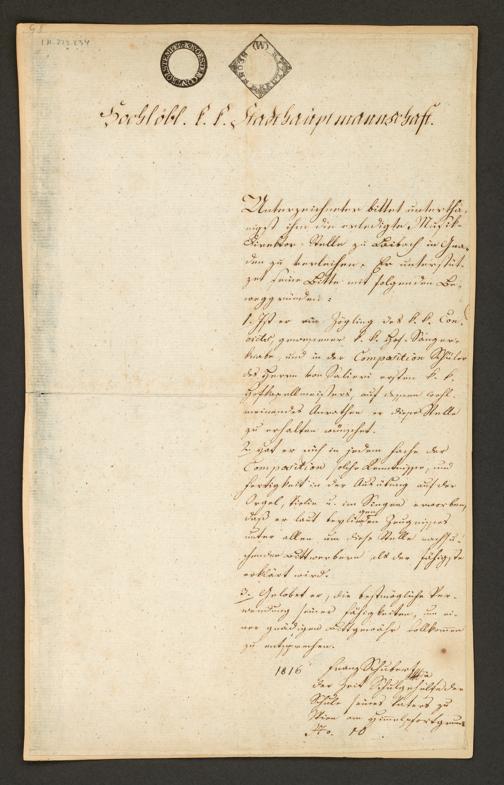 I.N. 272.234
CONTROLSTEMPEL
Hochlöbl. k. k. Stadthauptmannschaft.
Unterzeichneter bittet unterthä-
nigst ihm die erledigte Musik-
Direktor-Stelle zu Laibach in Gna-
den zu verleihen. Er unterstüt-
zet seine Bitte mit folgenden Be-
weggründen:
1. Ist er ein Zögling des k. k. Con-
victes, gewesener k. k. Hof-Sänger-
knabe, und in der Composition Schüler
des Herrn von Salieri ersten k. k.
Hofkapellmeisters, auf dessen wohl-
meinendes Anrathen er diese Stelle
zu erhalten wünschet.
2. Hat er sich in jedem Fache der
Composition solche Kenntnisse, und
Fertigkeit in der Ausübung auf der
Orgel, Violin u. im Singen erworben,
daß er laut beyliegenden Zeugnisses
unter allen um diese Stelle nachsu-
chenden Bittwerbern als der fähigste
erklärt wird.
3. Gelobet er, die bestmögliche Ver-
wendung seiner Fähigkeiten, um ei-
ner gnädigen Bittgewähr vollkommen
zu entsprechen.
1816 Franz Schubert
der Zeit Schulgehülfe der
Schule seines Vaters zu
Wien am Himmelpfortgrund
No. 10